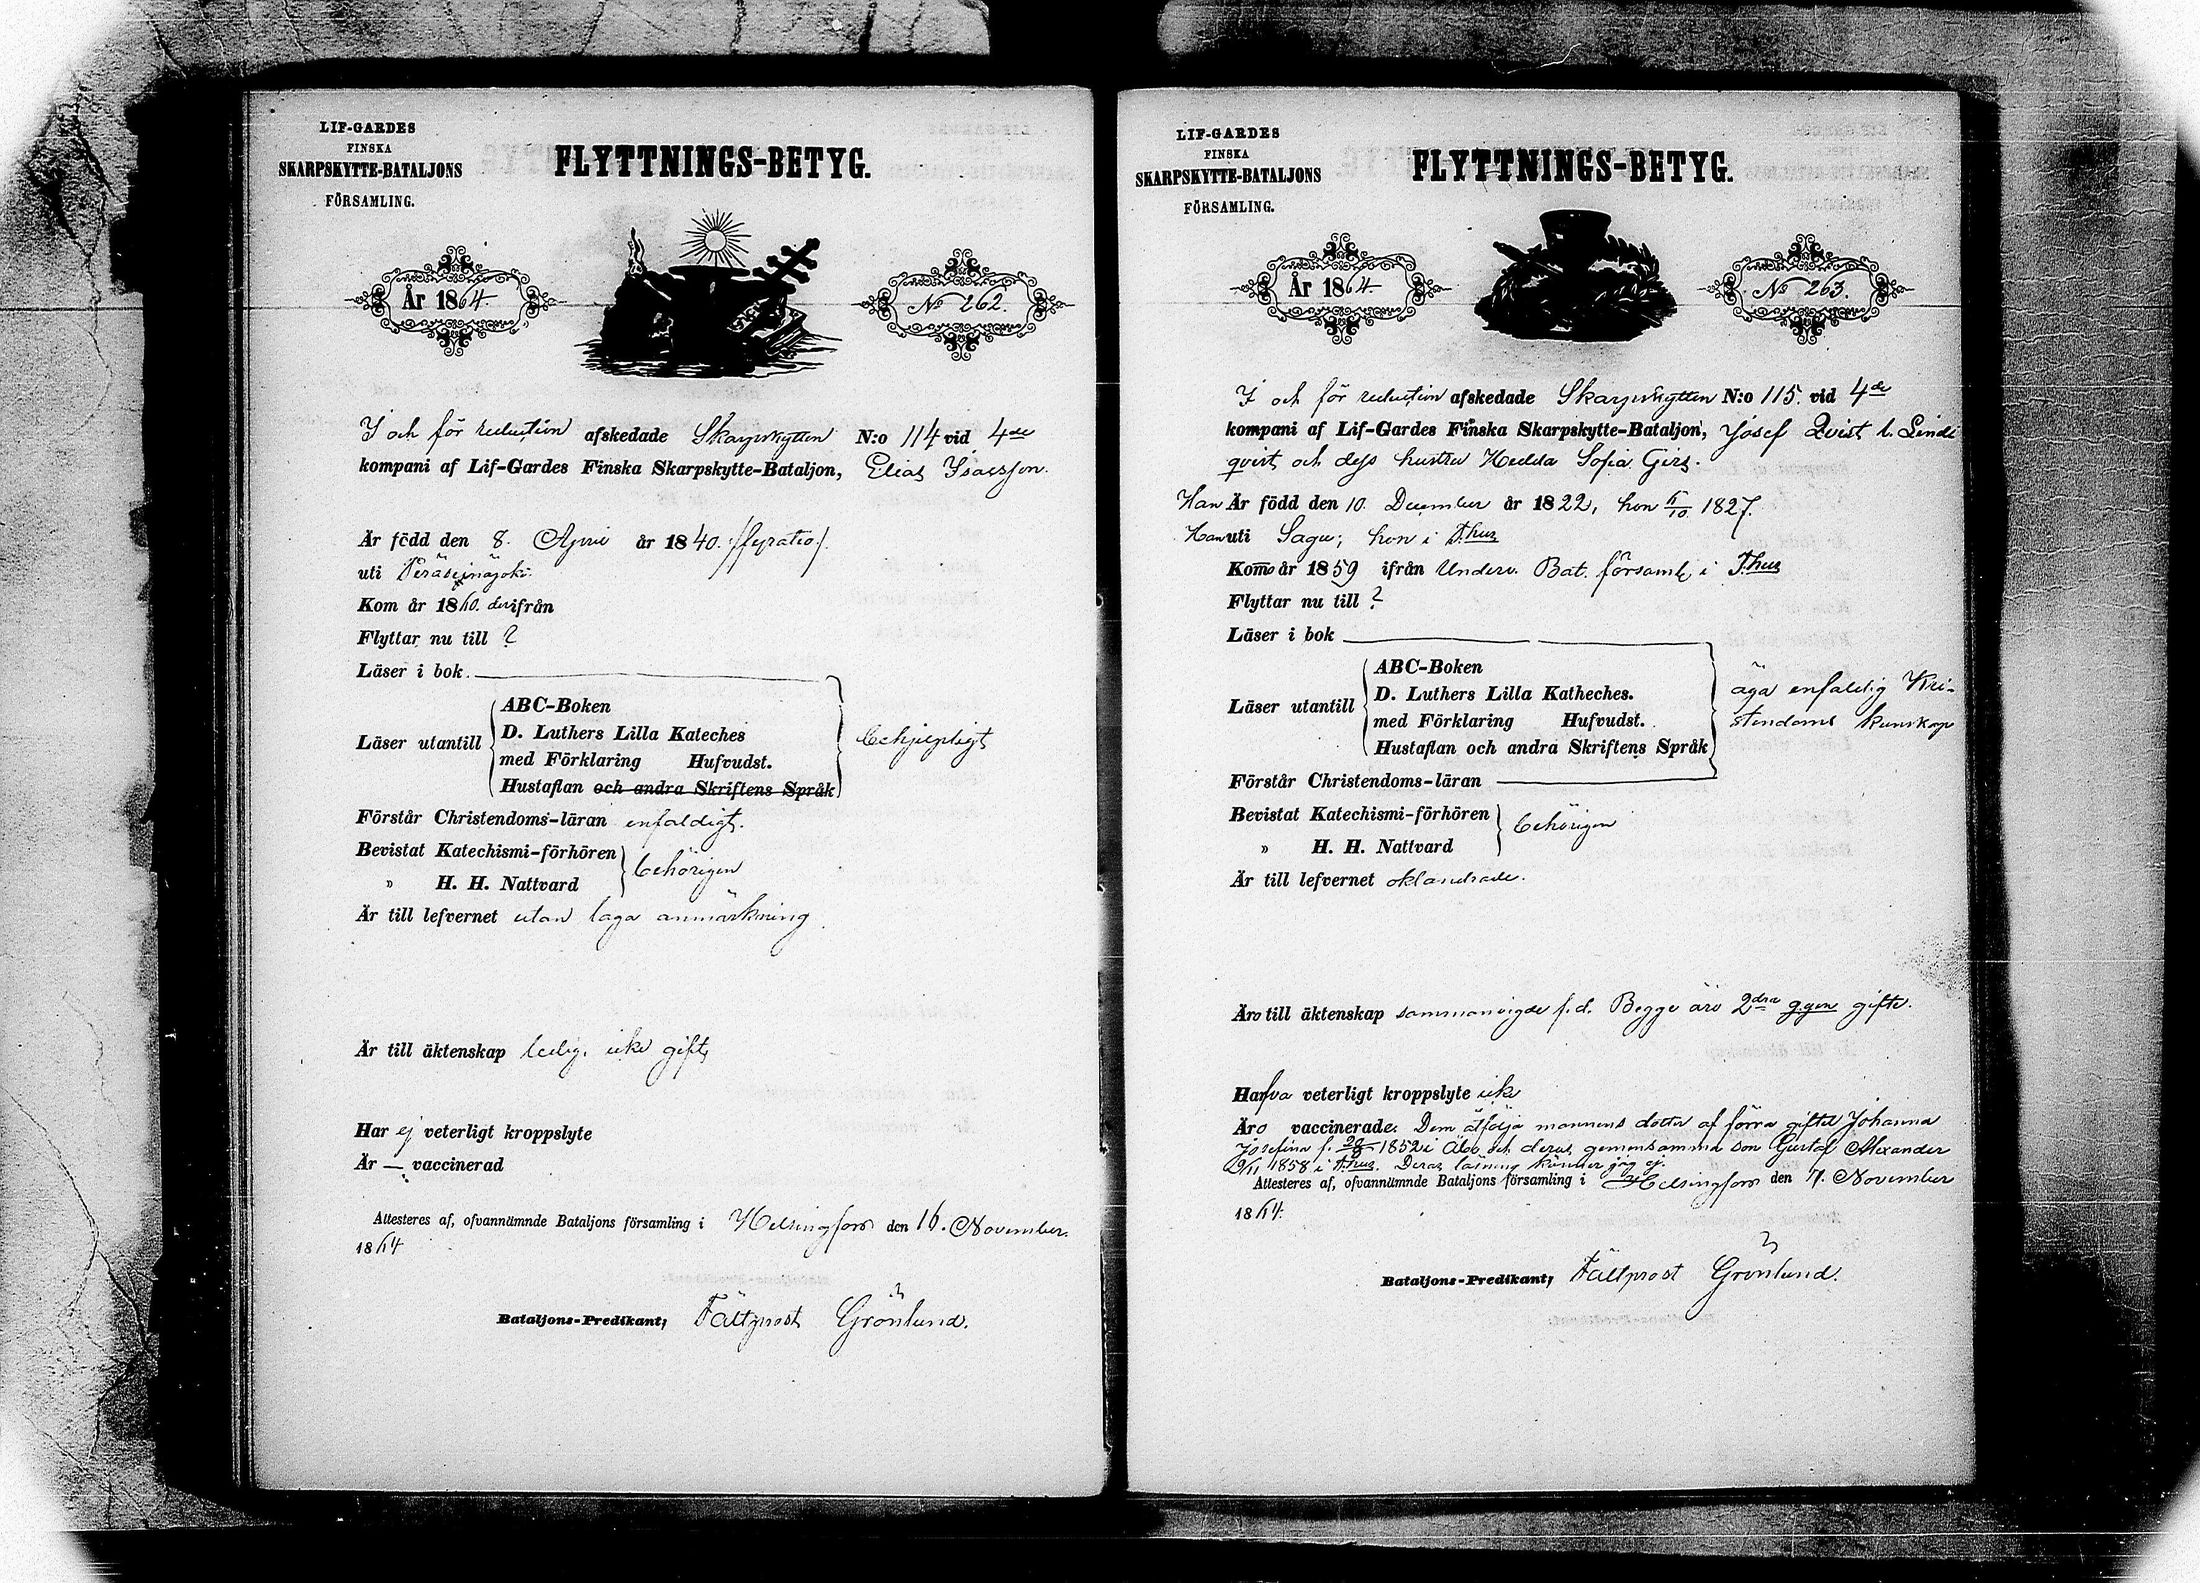 LIF-GARDES
FINSKA
SKARPSKYTTE-BATALJONS
FÖRSAMLING.
FLYTTNINGS-BETYG.
År 1864.
No 262.
I och för reduction afskedade Skarpskytten N:o 114 vid 4de
kompani af Lif-Gardes Finska Skarpskytte-Bataljon, Elias Isacsson.
Är född den 8. April år 1840. /:fyratio:/
uti Peräseinäjoki.
Kom år 1860. derifrån
Flyttar nu till ?
Läser i bok
Läser utantill
ABC-Boken
D. Luthers Lilla Kateches
med Förklaring Hufvudst.
Hustaflan och andra Skriftens Språk
behjelpligt
Förstår Christendoms-läran enfaldigt.
Bevistat Katechismi-förhören
" H. H. Nattvard
behörigen
Är till lefvernet utan laga anmärkning
Är till äktenskap ledig, icke gift,
Har ej veterligt kroppslyte
Är — vaccinerad
Attesteres af, ofvannämnde Bataljons församling i Helsingfors den 16. November
1864
Bataljons-Predikant, Fältprost Grönlund.
LIF-GARDES
FINSKA
SKARPSKYTTE-BATALJONS
FÖRSAMLING.
FLYTTNINGS-BETYG.
År 1864
No 263.
I och för reduction afskedade Skarpskytten N:o 115. vid 4de
kompani af Lif-Gardes Finska Skarpskytte-Bataljon, Josef Qvist l. Lind
qvist och dess hustru Hedda Sofia Girs.
Han Är född den 10. December år 1822, hon 1827.
Han uti Sagu; hon i T.hus
Komo år 1859 ifrån Underv. Bat. församl. i T.hus
Flyttar nu till ?
Läser i bok
Läser utantill
ABC-Boken
D. Luthers Lilla Katheches.
med Förklaring Hufvudst.
Hustaflan och andra Skriftens Språk
äga enfaldig Kri-
stendoms kunskap
Förstår Christendoms-läran
Bevistat Katechismi-förhören
" H. H. Nattvard
behörigen
Är till lefvernet oklandrade.
Äro till äktenskap sammanvigde f.d. Begge äro 2dra g.gen gifte.
Hafva veterligt kroppslyte icke
Äro vaccinerade. Dem åtfölja mannens dotter af förra giftet Johanna
Josefina f. 28/8 1852 i Åbo och deras gemensamma son Gustaf Alexander
1858 i T.hus. Deras läsning känner jag ej.
Attesteres af, ofvannämnde Bataljons församling i Helsingfors den 17. November
1864.
Bataljons-Predikant, Fältprost Grönlund.